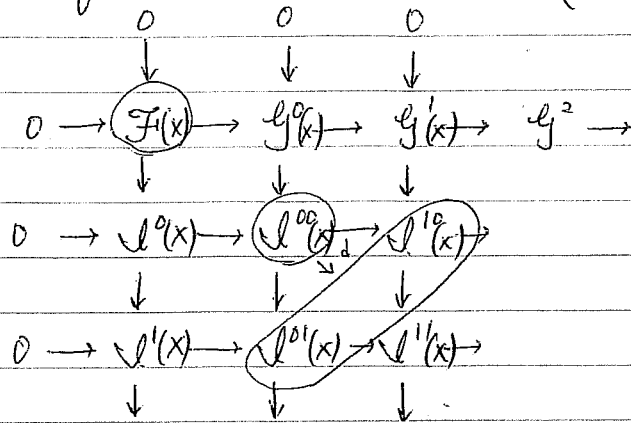 0 0 0
↓ ↓ ↓
0 → ℱ(x) → 𝒢⁰(x) → 𝒢¹(x) → 𝒢² →
↓ ↓ ↓
0 → ℐ⁰(x) → ℐ⁰⁰(x) → ℐ¹⁰(x) →
↘ d
↓ ↓ ↓
0 → ℐ¹(x) → ℐ⁰¹(x) → ℐ¹¹(x) →
↓ ↓ ↓